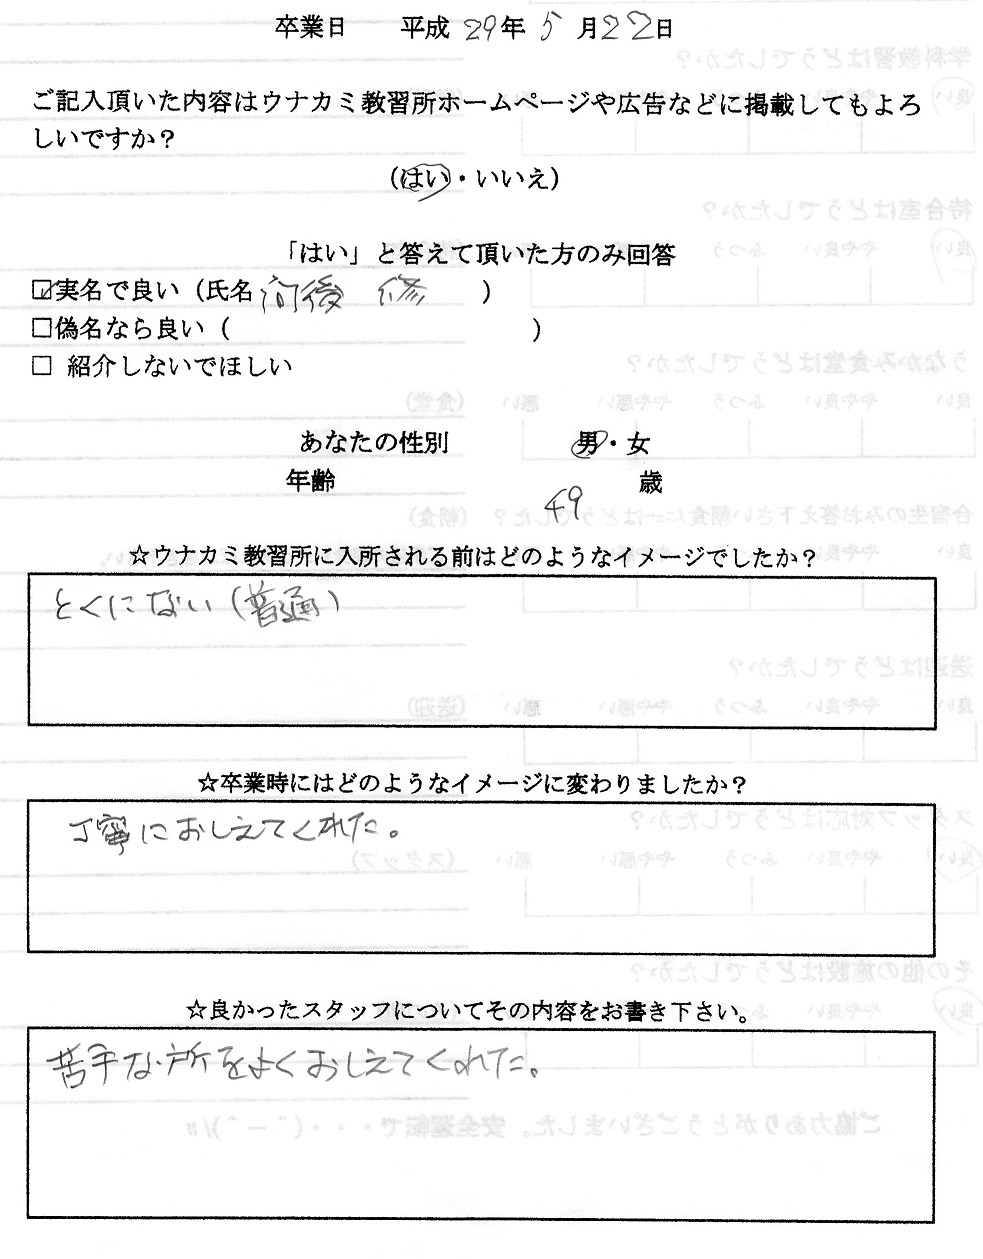 卒業日 平成 29年 5月22日
ご記入頂いた内容はウナカミ教習所ホームページや広告などに掲載してもよろ
しいですか？
（はい・いいえ）
「はい」と答えて頂いた方のみ回答
☑実名で良い（氏名 向後 修 ）
□偽名なら良い（ ）
□ 紹介しないでほしい
あなたの性別 男・女
年齢 49 歳
☆ウナカミ教習所に入所される前はどのようなイメージでしたか？
とくにない（普通）
☆卒業時にはどのようなイメージに変わりましたか？
丁寧におしえてくれた。
☆良かったスタッフについてその内容をお書き下さい。
苦手な所をよくおしえてくれた。